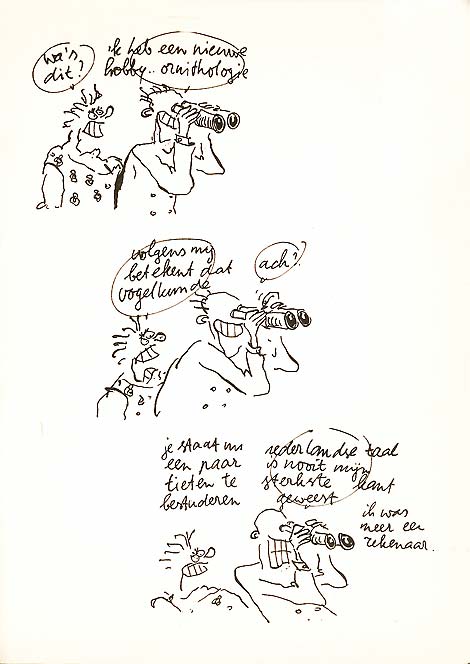 wa's
dit?
ik heb een nieuwe
hobby.. ornithologie
volgens mij
betekent dat
vogelkunde
ach?
je staat nu
een paar
tieten te
bestuderen
nederlandse taal
is nooit mijn
sterkste kant
geweest
ik was
meer een
rekenaar.